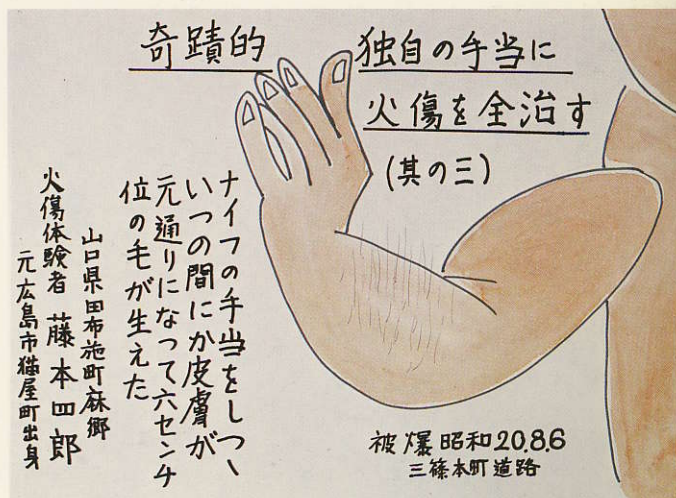 奇蹟的 独自の手当に
火傷を全治す
(其の三)
ナイフの手当をしつゝ
いつの間にか皮膚が
元通りになって六センチ
位の毛が生えた
山口県田布施町麻郷
火傷体験者 藤本四郎
元広島市猫屋町出身
被爆昭和20.8.6
三篠本町道路